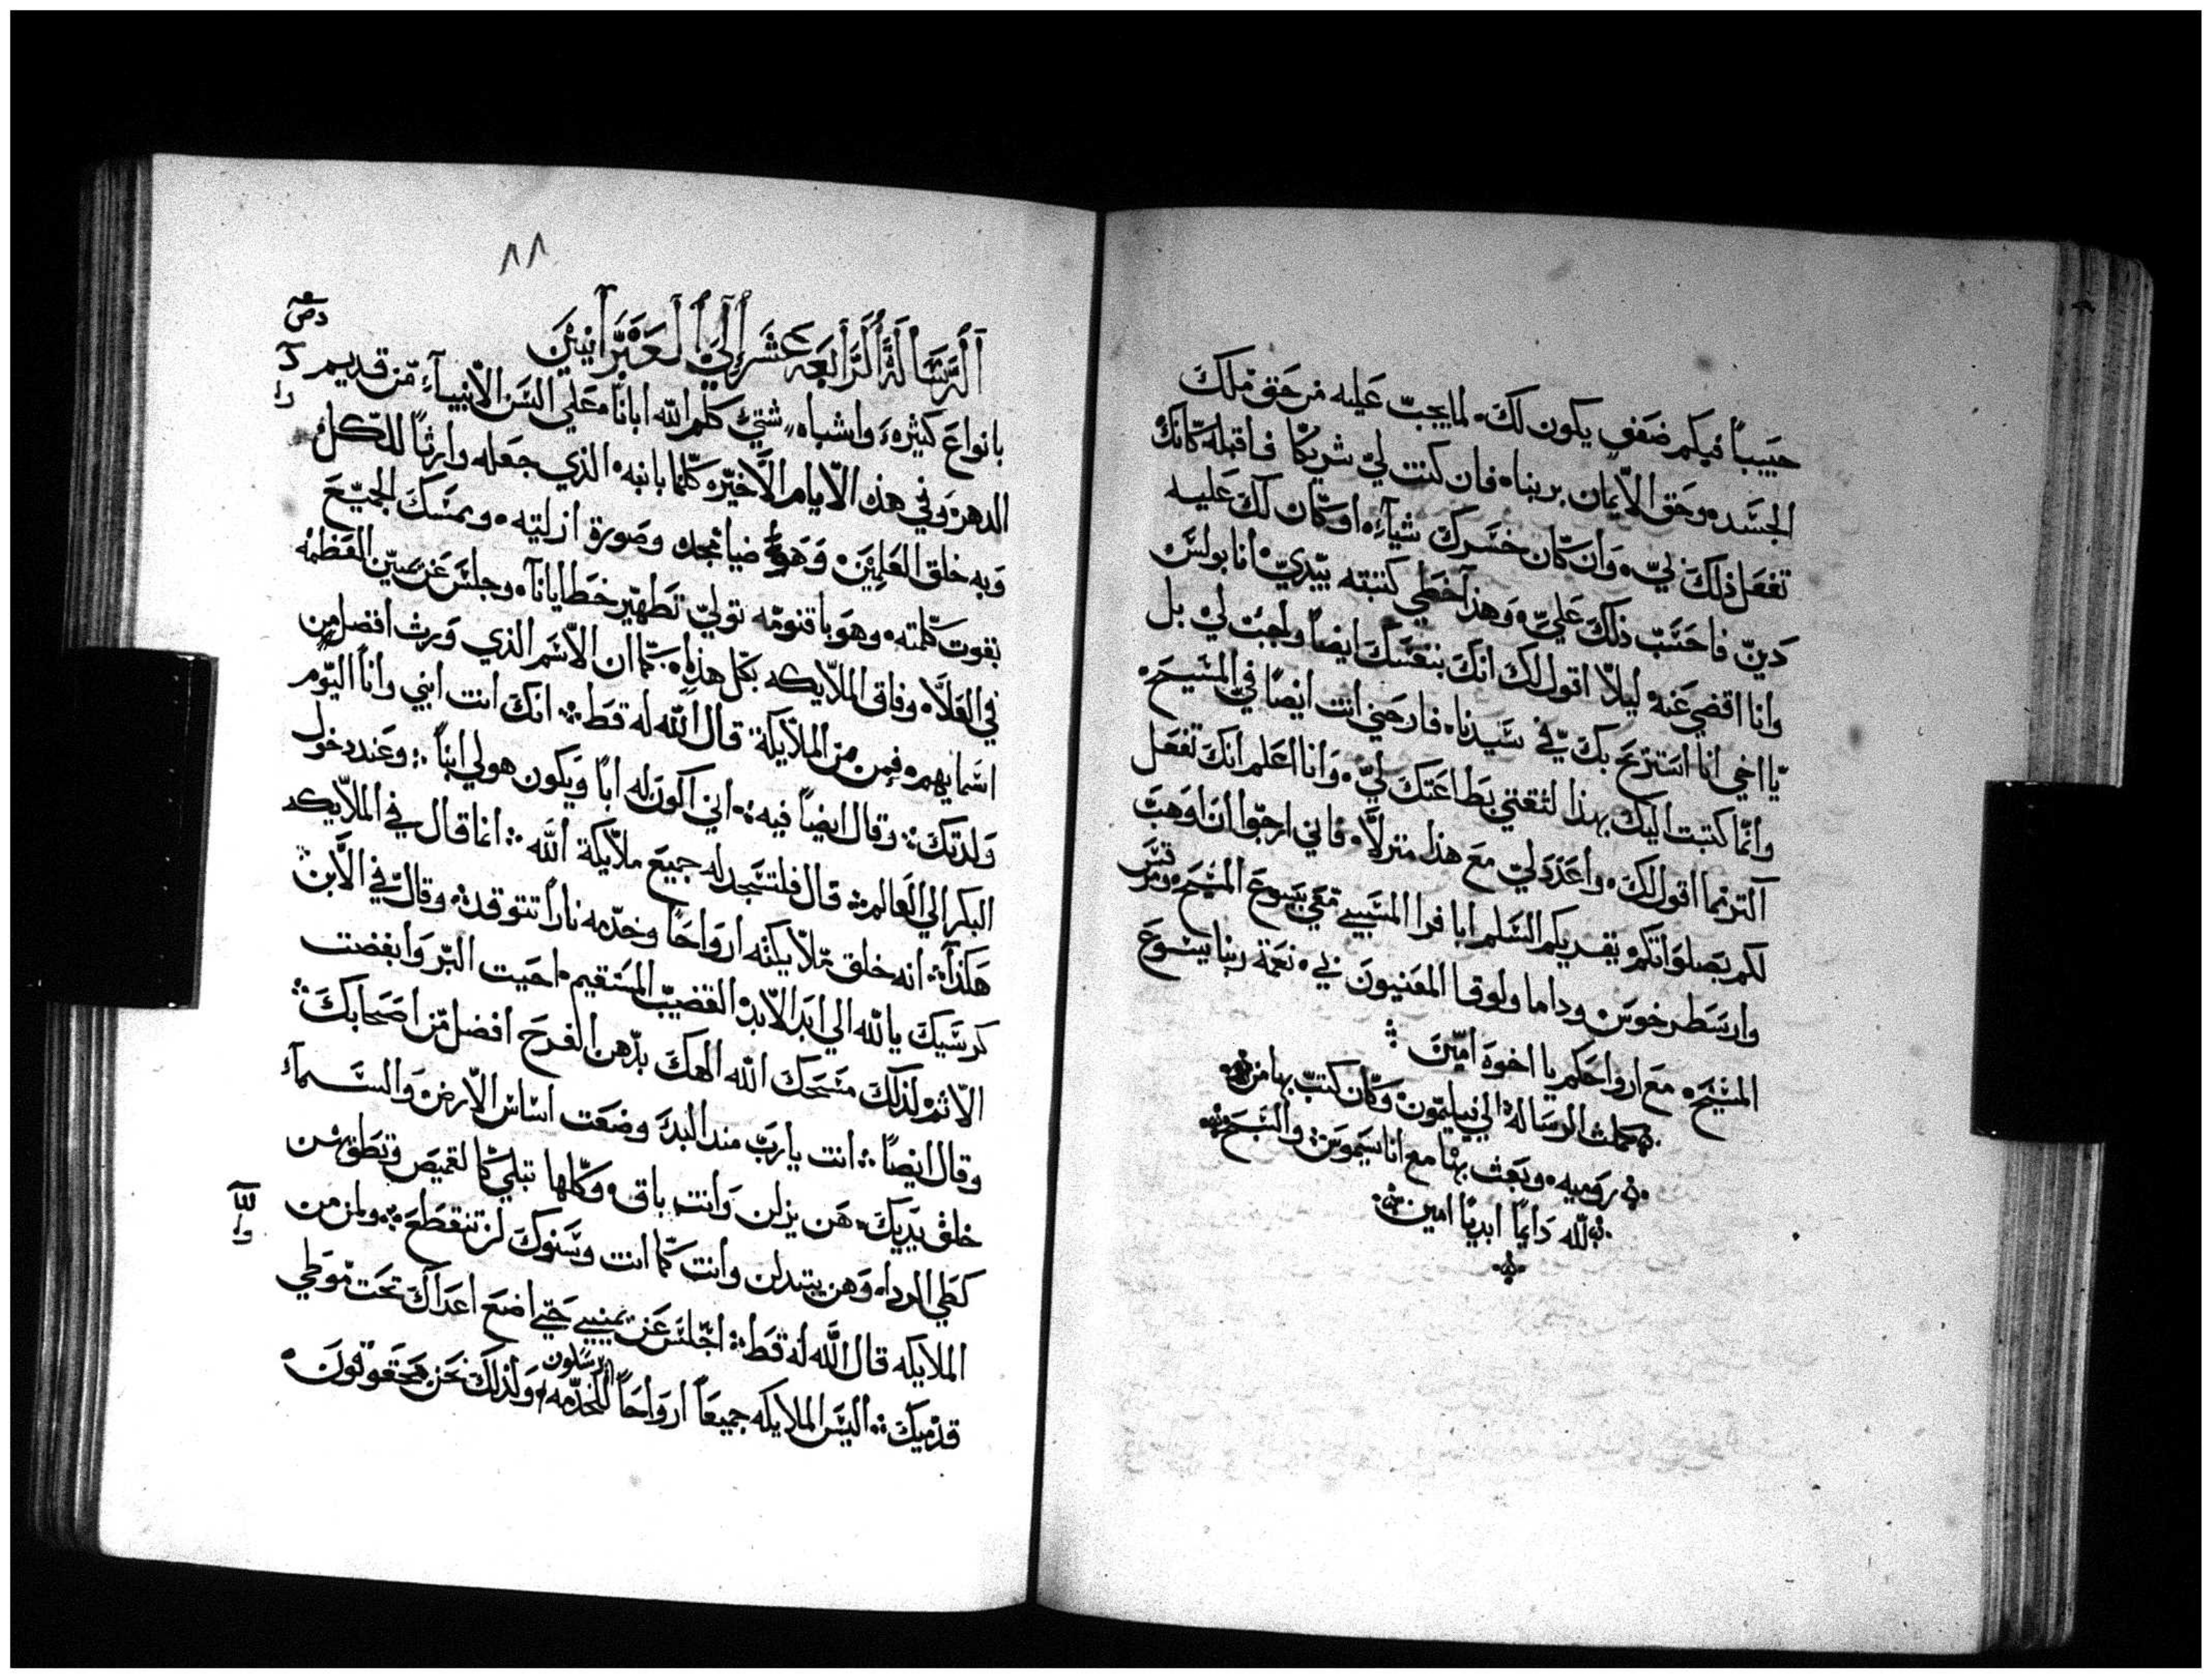 حبيباً فيكم ضعف يكون لك. لما يجب عليه من حق ملك
الجسد. وحق الايمان بربنا. فان كنت لي شريكا فاقبله كانك
تفعل ذلك لي. وان كان خسرك شياً. او كان لك عليه
دين فاحسب ذلك علي. وهذا خطي كتبته بيدي انا بولس
وانا اقضي عنه ليلا اقول لك انك بنفسك ايضاً واجب لي بل
يا اخي انا استريح بك في سيدنا. فارحني انت ايضاً في المسيح.
وانما كتبت اليك بهذا لثقتي بطاعتك لي. وانا اعلم انك تفعل
اكثر مما اقول لك. واعدد لي مع هذا منزلا. فاني ارجوا ان اوهب
لكم بصلواتكم يقريكم السلم ابا فرا المسبي معي بيسوع المسيح. ومرقس
وارسطرخوس وداما ولوقا المعنيون لي. نعمة ربنا يسوع
المسيح. مع ارواحكم يا اخوه امين
كملت الرساله الي فيليمون وكان كتب بها من
روميه. وبعث بها مع اناسيموس والتسبح
لله دايماً ابدياً امين
٨٨
الرسالة الرابعه عشر الي العبرانيين
بانواع كثيره. واشباه شتي كلم الله ابانا. علي السن الانبياء من قديم
الدهر. وفي هذه الايام الاخيره كلمنا بابنه. الذي جعله وارثاً للكل
وبه خلق العلمين. وهو ضيا مجده وصورة ازليته. ويمسك الجميع
بقوت كلمته. وهو باقنومه تولي تطهير خطايانا. وجلس عن يمين العظمه
في العلا. وفاق الملايكه بكل هذا. كما ان الاسم الذي ورث افضل من
اسمايهم. فمن من الملايكة قال الله له قط انك انت ابني وانا اليوم
ولدتك وقال ايضاً فيه اني اكون له اباً ويكون هو لي ابناً وعند دخول
البكر الي العالم قال فلتسجد له جميع ملايكة الله انما قال في الملايكه
هكذا انه خلق ملايكته ارواحاً وخدمه ناراً تتوقد. وقال في الابن
كرسيك يالله الي ابد الابد. القضيب المستقيم. احببت البر وابغضت
الاثم لذلك مسحك الله الهك بدهن الفرح افضل من اصحابك
وقال ايضاً انت يارب منذ البدء وضعت اساس الارض والسماء
خلق يديك. هن يزلن وانت باق. وكلها تبلي كالقميص وتطوهن
كطي الردا. وهن يتبدلن وانت كما انت وسنوك لن تنقطع ولمن من
الملايكه قال الله له قط اجلس عن يميني حتي اضع اعداك تحت موطي
قدميك اليس الملايكه جميعاً ارواحاً للخدمه يرسلون ولذلك نحن محقوقون